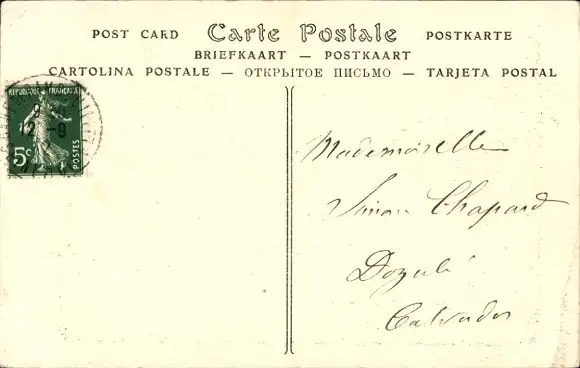 POST CARD Carte Postale POSTKARTE
BRIEFKAART — POSTKAART
CARTOLINA POSTALE — ОТКРЫТОЕ ПИСЬМО — TARJETA POSTAL
REPUBLIQUE FRANÇAISE
5c POSTES
12 -9
Mademoiselle
Simon Chapard
Dozulé
Calvados